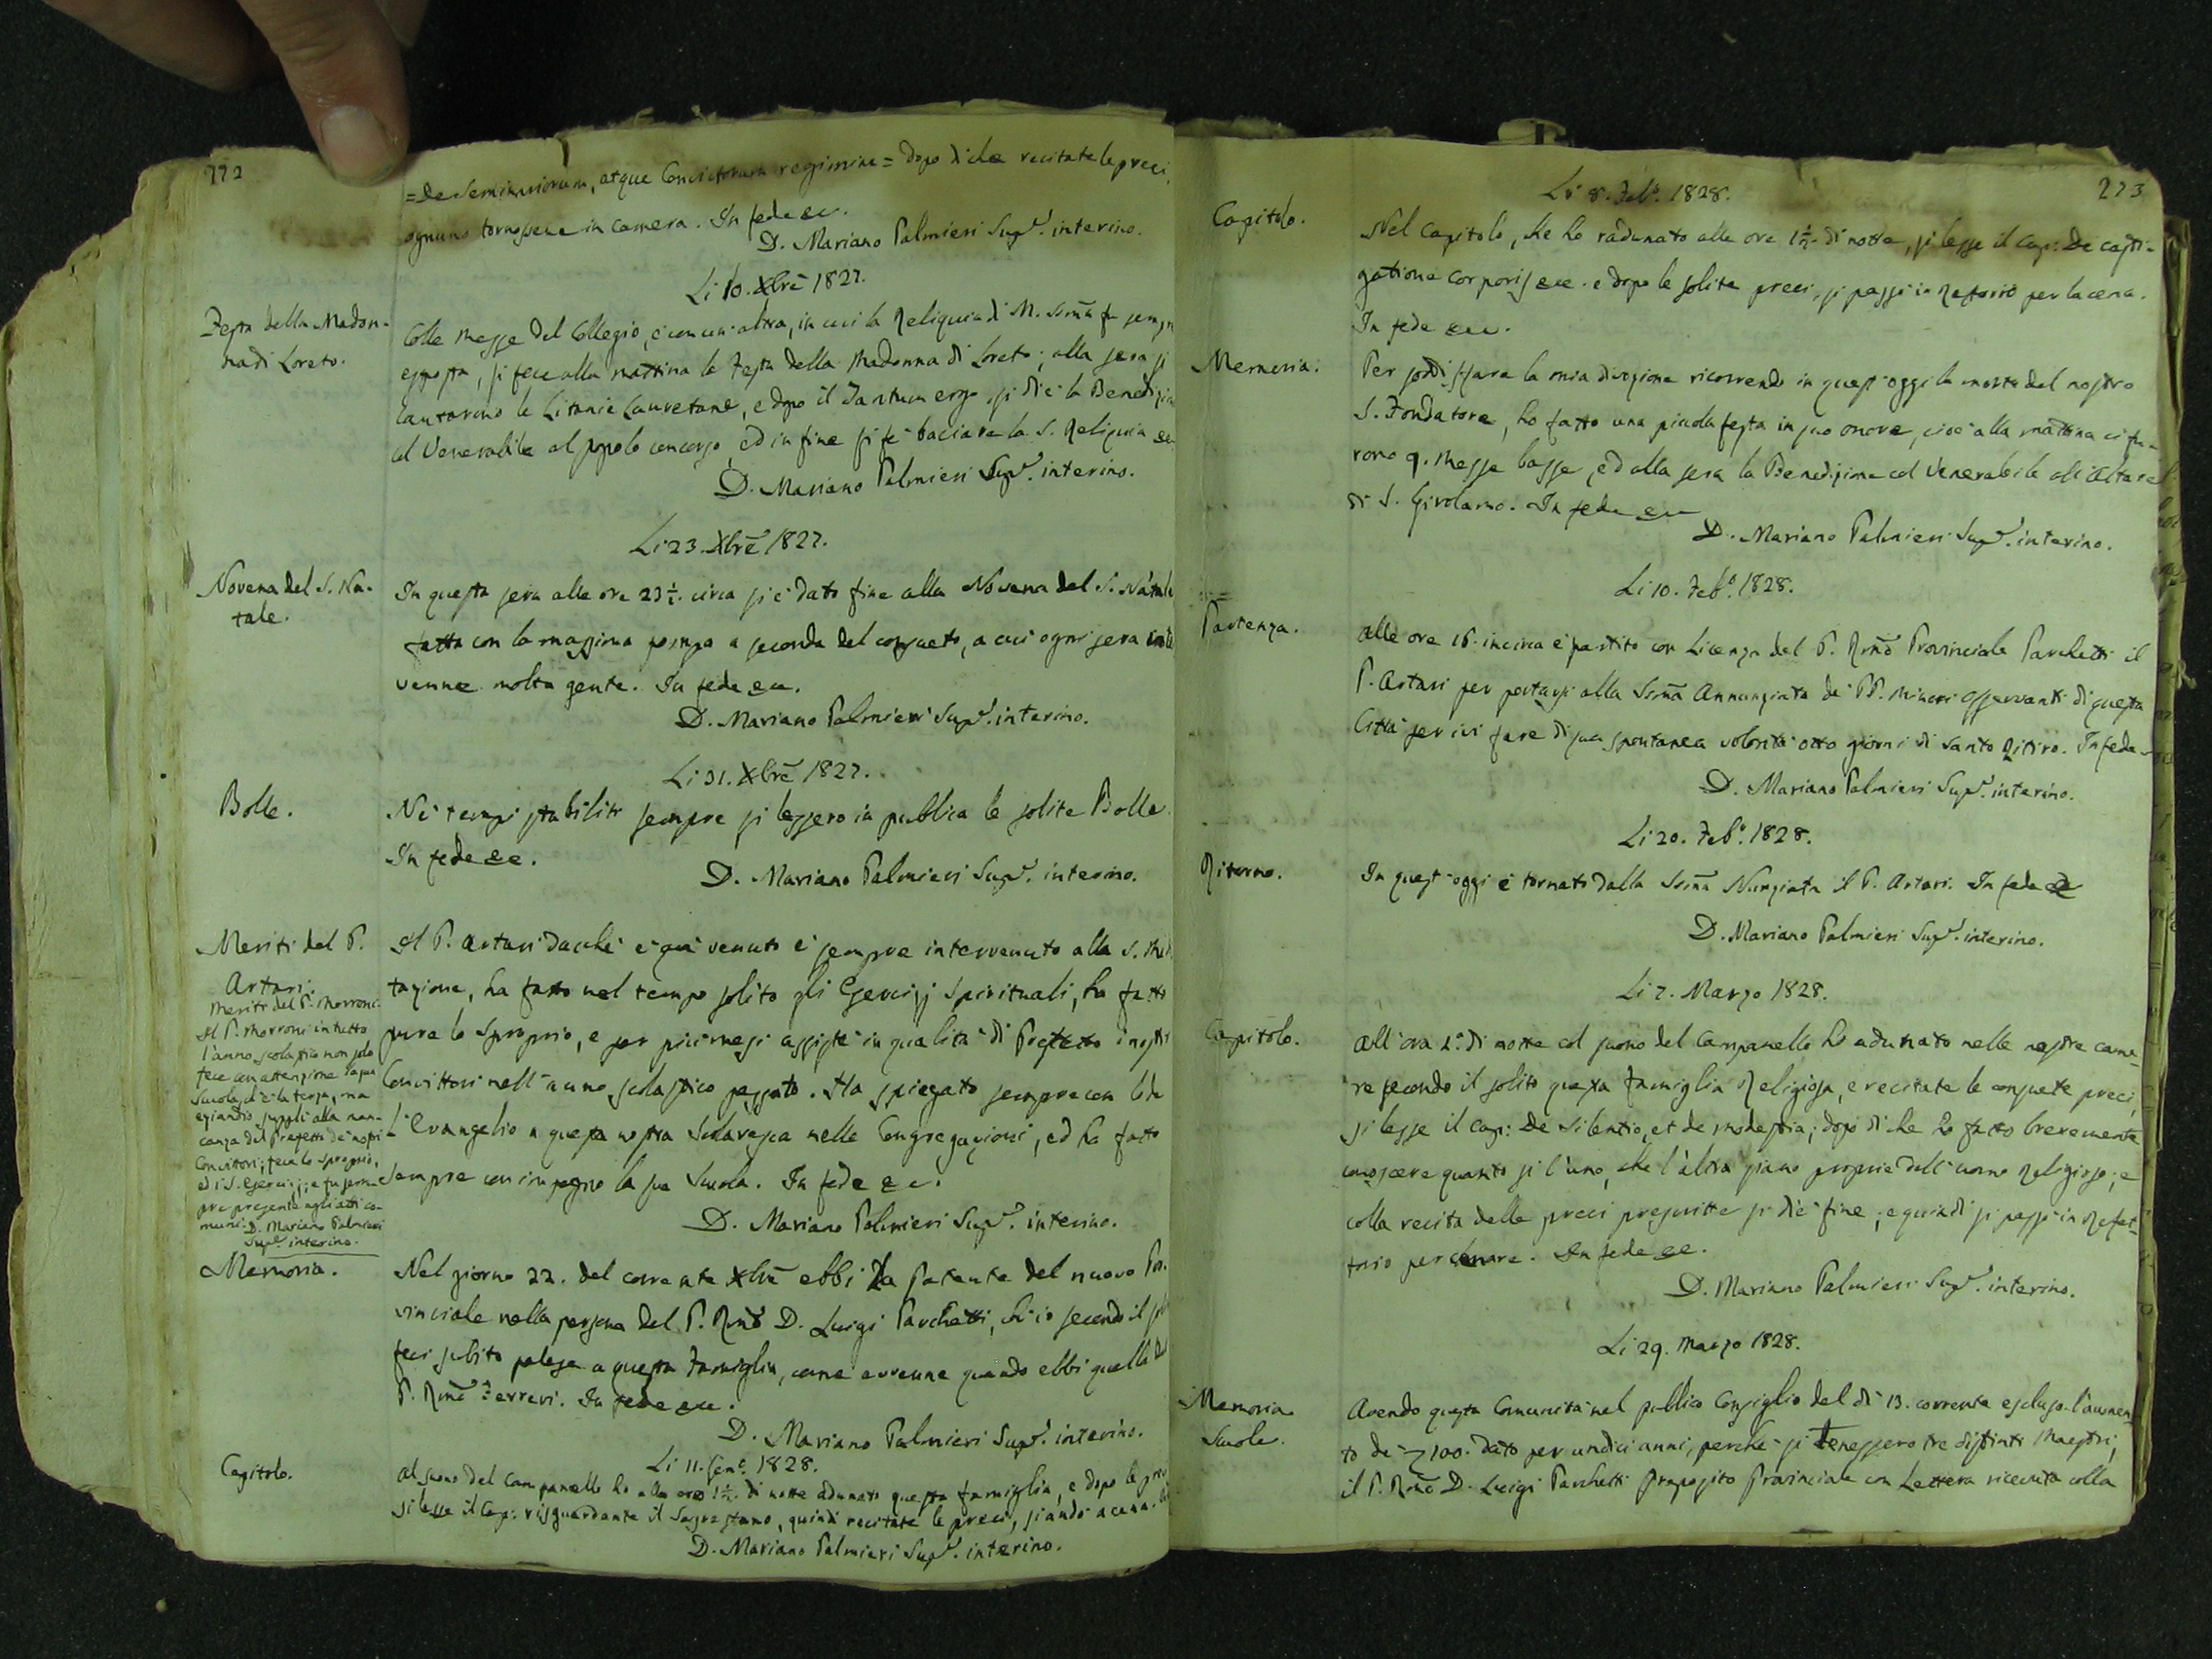 272
=De Seminariorum, atque Convictorum regimine= Dopo di che recitate le preci,
ognuno tornossene in camera. In fede ec.
D. Mariano Palmieri Sup.e interino.
Li 10. Xbrē 1827.
Festa della Madon-
na di Loreto.
Colle Messe del Collegio, e con un'altra, in cui la Reliquia di M. Ssm̄a fu sempre
esposta, si fece alla mattina la Festa della Madonna di Loreto; alla sera si
cantarono le Litanie Lauretane, e dopo il Tantum ergo si diè la Benedizio
col Venerabile al popolo concorso, ed in fine si fe' baciare la S. Reliquia ec
D. Mariano Palmieri Sup.e interino.
Li 23. Xbrē 1827.
Novena del S. Na-
tale.
In questa sera alle ore 23½. circa si è dato fine alla Novena del S. Natale
fatta con la massima pompa a seconda del consueto, a cui ogni sera inte
venne molta gente. In fede ec.
D. Mariano Palmieri Sup.e interino.
Li 31. Xbrē 1827.
Bolle.
Ne' tempi stabiliti sempre si lessero in publica le solite Bolle.
In fede ec.
D. Mariano Palmieri Sup.e interino.
Meriti del P.
Artari.
Il P. Artari dacchè è quì venuto è sempre intervenuto alla S. Medi
tazione, ha fatto nel tempo solito gli Esercizj Spirituali, ha fatto
pure lo Sproprio, e per più mesi assistè in qualità di Prefetto i nostri
Convittori nell'anno scolastico passato. Ha spiegato sempre con lode
l'Evangelio a questa nostra Scolaresca nelle Congregazioni, ed ha fatto
sempre con impegno la sua Scuola. In fede ec.
D. Mariano Palmieri Sup.e interino.
Meriti del P. Morroni.
Il P. Morroni in tutto
l'anno scolastico non solo
fece con attenzione la sua
Scuola, ch'è la terza, ma
eziandio supplì alla man-
canza del Prefetto de' nostri
Convittori; fece lo Sproprio,
ed i S. Esercizj; e fu sem-
pre presente agli atti co-
muni. D. Mariano Palmieri
Sup.e interino.
Memoria.
Nel giorno 22. del corrente Xbrē ebbi la Patente del nuovo Pro-
vinciale nella persona del P. Rm̄o D. Luigi Parchetti, ch'io secondo il
feci subito palese a questa Famiglia, come avvenne quando ebbi quella del
P. Rm̄o Ferreri. In fede ec.
D. Mariano Palmieri Sup.e interino.
Li 11. Gen.o 1828.
Capitolo.
Al suono del Campanello ho alle ore 1½. di notte adunato questa famiglia, e dopo le preci
si lesse il Cap: risguardante il Sagrestano, quindi recitate le preci, si andò a cena.
D. Mariano Palmieri Sup.e interino.
273
Li 8. Feb.o 1828.
Capitolo.
Nel Capitolo, che ho radunato alle ore 1½. di notte, si lesse il Cap: De casti-
gatione corporis ec. e dopo le solite preci, si passò in Reftorio per la cena.
In fede ec.
Memoria.
Per soddisfare la mia divozione ricorrendo in quest'oggi la morte del nostro
S. Fondatore, ho fatto una piccola festa in suo onore, cioè alla mattina ci fu-
rono 9. Messe basse, ed alla sera la Benedizione col Venerabile all'Altare
di S. Girolamo. In fede ec
D. Mariano Palmieri Sup.e interino.
Li 10. Feb.o 1828.
Partenza.
Alle ore 16. incirca è partito con Licenza del P. Rm̄o Provinciale Parchetti il
P. Artari per portarsi alla Ssm̄a Annunziata de' PP. Minori Osservanti di questa
Città per ivi fare di sua spontanea volontà otto giorni di santo Ritiro. In fede
D. Mariano Palmieri Sup.e interino.
Li 20. Feb.o 1828.
Ritorno.
In quest'oggi è tornato dalla Ssm̄a Nunziata il P. Artari. In fede ec
D. Mariano Palmieri Sup.e interino.
Li 7. Marzo 1828.
Capitolo.
All'ora 1.a di notte col suono del Campanello ho adunato nelle nostre came-
re secondo il solito questa famiglia Religiosa, e recitate le consuete preci,
si lesse il Cap: De Silentio, et de modestia; dopo di che ho fatto brevemente
conoscere quanto sì l'uno, che l'altra siano proprie dell'uomo Religioso; e
colla recita delle preci prescritte si diè fine; e quindi si passò in Refet-
torio per cenare. In fede ec.
D. Mariano Palmieri Sup.e interino.
Li 29. Marzo 1828.
Memoria
Scuole.
Avendo questa Comunità nel publico Consiglio del dì 13. corrente escluso l'aumen-
to de' 100. dato per undici anni, perchè si tenessero tre distinti Maestri,
il P. Rm̄o D. Luigi Parchetti Preposito Provinciale con Lettera ricevuta colla